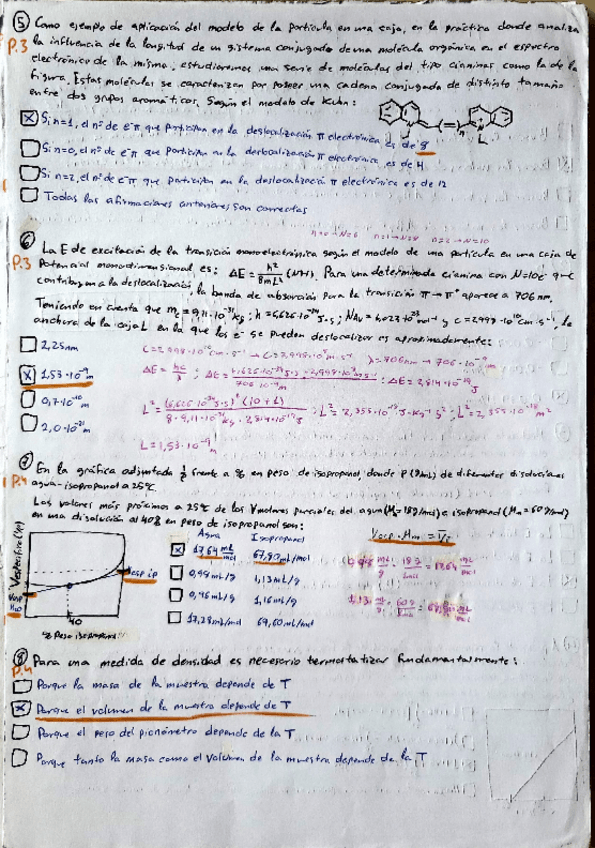 ⑤ Como ejemplo de aplicación del modelo de la partícula en una caja, en la práctica donde analiza
P.3 la influencia de la longitud de un sistema conjugado de una molécula orgánica en el espectro
electrónico de la misma, estudiaremos una serie de moléculas del tipo cianinas como la de la
figura. Estas moléculas se caracterizan por poseer una cadena conjugada de distinto tamaño
entre dos grupos aromáticos. Según el modelo de Kuhn:
X Si n=1, el nº de e⁻π que participan en la deslocalización π electrónica es de 8
Si n=0, el nº de e⁻π que participan en la deslocalización π electrónica es de 4
Si n=2, el nº de e⁻π que participan en la deslocalización π electrónica es de 12
Todas las afirmaciones anteriores son correctas
n=0→N=6 n=1→N=8 n=2→N=10
⑥ La E de excitación de la transición monoelectrónica según el modelo de una partícula en una caja de
P.3 potencial monodimensional es: ΔE = h²/8mL² (N+1). Para una determinada cianina con N=10e⁻ que
contribuyen a la deslocalización, la banda de absorción para la transición π→π* aparece a 706 nm.
Teniendo en cuenta que me=9,11·10⁻³¹kg; h=6,626·10⁻³⁴J·s; NAv=6,023·10²³mol⁻¹ y c=2,998·10¹⁰cm·s⁻¹, la
anchura de la caja L en la que los e⁻ se pueden deslocalizar es aproximadamente:
2,25nm
X 1,53·10⁻⁹m
0,7·10⁻¹⁰m
2,0·10⁻²¹m
c=2,998·10¹⁰cm·s⁻¹→c=2,998·10⁸m·s⁻¹ λ=706nm→706·10⁻⁹m
ΔE=hc/λ; ΔE=6,626·10⁻³⁴J·s·2,998·10⁸m·s⁻¹/706·10⁻⁹m; ΔE=2,814·10⁻¹⁹J
L²=(6,626·10⁻³⁴J·s)²(10+1)/8·9,11·10⁻³¹kg·2,814·10⁻¹⁹J; L²=2,355·10⁻¹⁸J·kg⁻¹s²; L²=2,355·10⁻¹⁸m²
L=1,53·10⁻⁹m
⑦ En la gráfica adjunta 1/ρ frente a % en peso de isopropanol, donde ρ(g/mL) de diferentes disoluciones
P.4 agua-isopropanol a 25ºC.
Los valores más próximos a 25ºC de los Vmolares parciales del agua (Mm=18g/mol) e isopropanol (Mm=60g/mol)
en una disolución al 40% en peso de isopropanol son:
Agua Isopropanol
X 17,64 mL/mol 67,80mL/mol
0,98mL/g 1,13mL/g
0,96mL/g 1,16mL/g
17,28mL/mol 69,60mL/mol
Vesp·Mm = V̄i
0,98 mL/g · 18g/1mol = 17,64 mL/mol
1,13 mL/g · 60g/1mol = 67,80 mL/mol
Vespecífico(1/ρ)
Vesp ip
Vesp H₂O
40
% Peso isopropanol
⑧ Para una medida de densidad es necesario termostatizar fundamentalmente:
P.4
Porque la masa de la muestra depende de T
X Porque el volumen de la muestra depende de T
Porque el peso del picnómetro depende de la T
Porque tanto la masa como el volumen de la muestra depende de la T